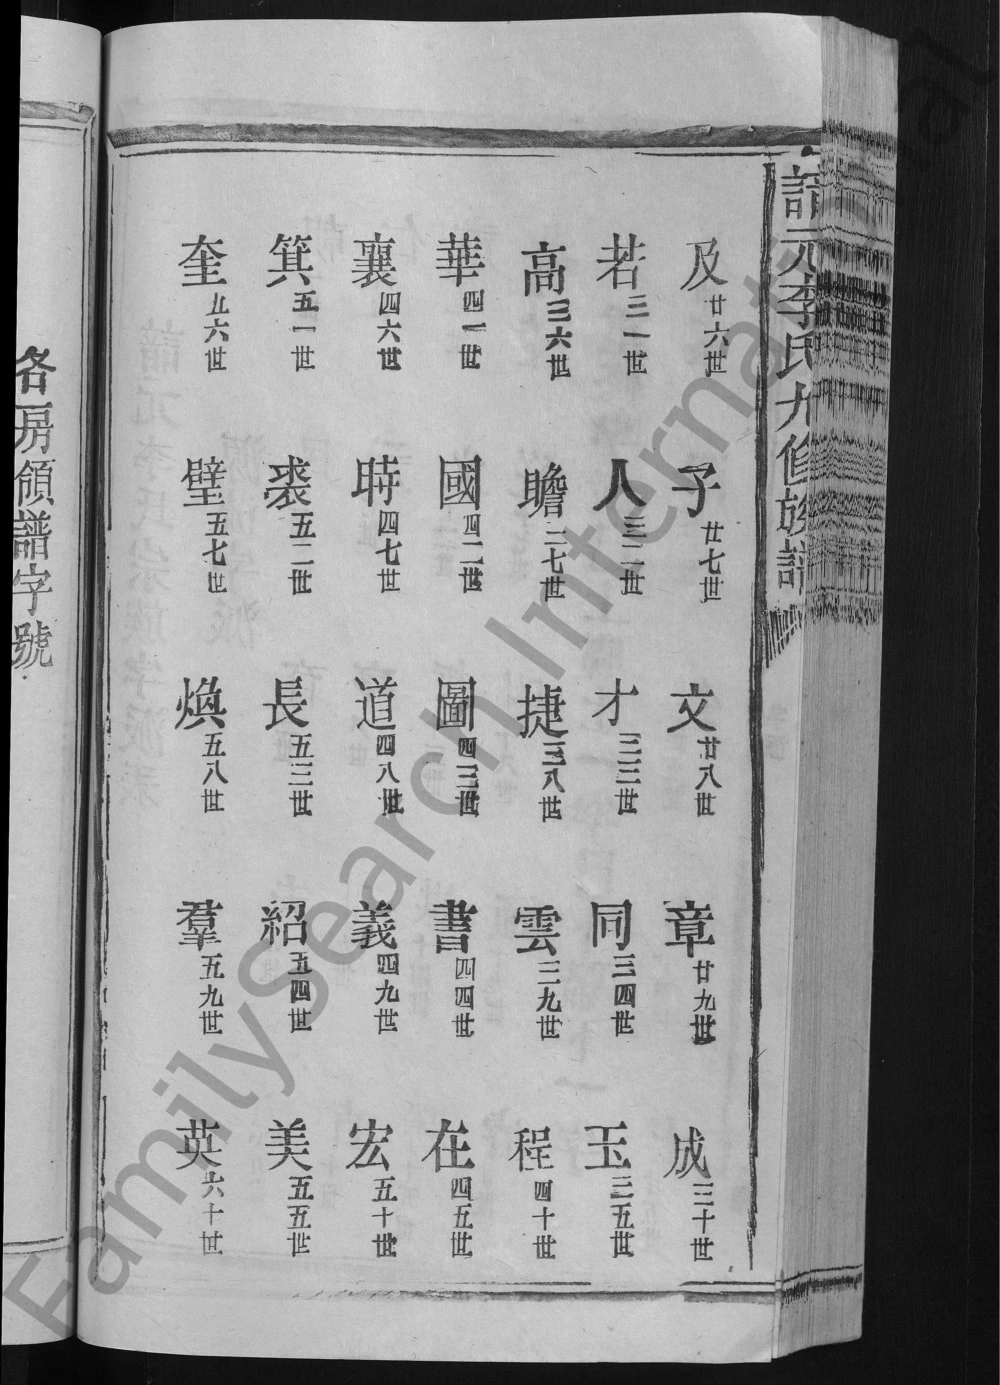 譜元李氏九修族譜
及 廿六世 子 廿七世 文 廿八世 章 廿九世 成 三十世
若 三一世 人 三二世 才 三三世 同 三四世 玉 三五世
高 三六世 瞻 三七世 捷 三八世 雲 三九世 程 四十世
華 四一世 國 四二世 圖 四三世 書 四四世 在 四五世
襄 四六世 時 四七世 道 四八世 義 四九世 宏 五十世
箕 五一世 裘 五二世 長 五三世 紹 五四世 美 五五世
奎 五六世 璧 五七世 煥 五八世 羣 五九世 英 六十世
各房領譜字號
FamilySearch International